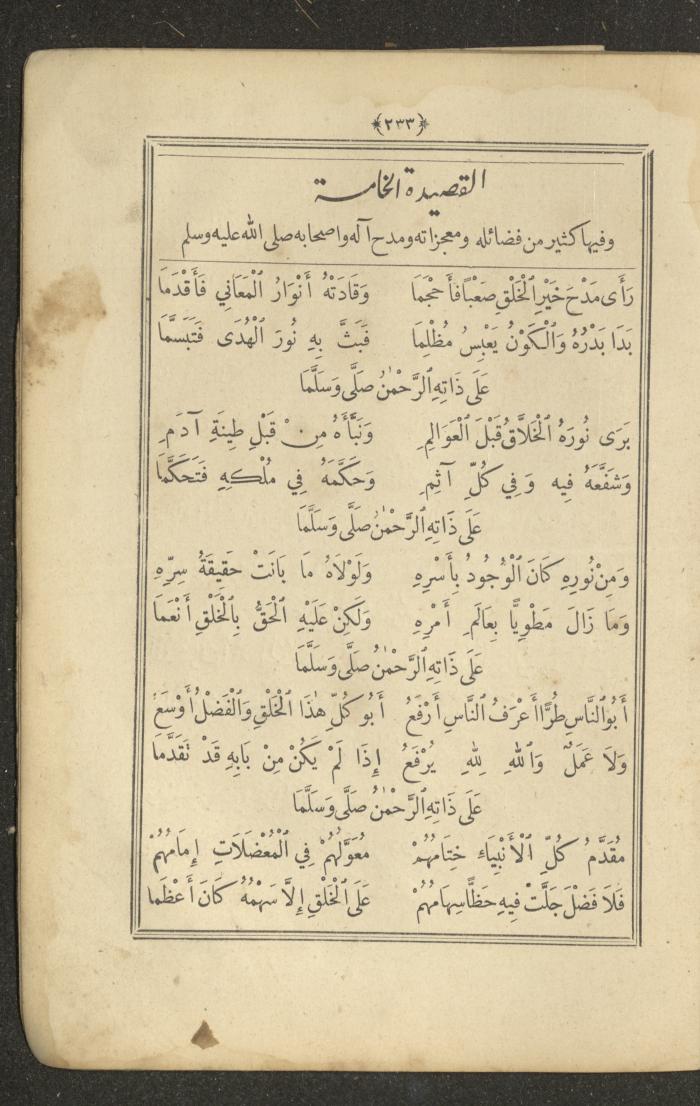 ﴿٢٣٣﴾
القصيدة الخامسة
وفيها كثير من فضائله ومعجزاته ومدح آله واصحابه صلى الله عليه وسلم
رَأَى مَدْحَ خَيْرِ الْخَلْقِ صَعْباً فَأَحْجَمَا وَقَادَتْهُ أَنْوَارُ الْمَعَانِي فَأَقْدَمَا
بَدَا بَدْرُهُ وَالْكَوْنُ يَعْبِسُ مُظْلِمَا فَبَثَّ بِهِ نُورَ الْهُدَى فَتَبَسَّمَا
عَلَى ذَاتِهِ الرَّحْمٰنُ صَلَّى وَسَلَّمَا
بَرَى نُورَهُ الْخَلَّاقُ قَبْلَ الْعَوَالِمِ وَنَبَّأَهُ مِنْ قَبْلِ طِينَةِ آدَمِ
وَشَفَّعَهُ فِيهِ وَفِي كُلِّ آثِمِ وَحَكَّمَهُ فِي مُلْكِهِ فَتَحَكَّمَا
عَلَى ذَاتِهِ الرَّحْمٰنُ صَلَّى وَسَلَّمَا
وَمِنْ نُورِهِ كَانَ الْوُجُودُ بِأَسْرِهِ وَلَوْلَاهُ مَا بَانَتْ حَقِيقَةُ سِرِّهِ
وَمَا زَالَ مَطْوِيًّا بِعَالَمِ أَمْرِهِ وَلَكِنْ عَلَيْهِ الْحَقُّ بِالْخَلْقِ أَنْعَمَا
عَلَى ذَاتِهِ الرَّحْمٰنُ صَلَّى وَسَلَّمَا
أَبُو النَّاسِ طُرًّا أَعْرَفُ النَّاسِ أَرْفَعُ أَبُو كُلِّ هٰذَا الْخَلْقِ وَالْفَضْلُ أَوْسَعُ
وَلَا عَمَلٌ وَاللهِ لِلهِ يُرْفَعُ إِذَا لَمْ يَكُنْ مِنْ بَابِهِ قَدْ تَقَدَّمَا
عَلَى ذَاتِهِ الرَّحْمٰنُ صَلَّى وَسَلَّمَا
مُقَدَّمُ كُلِّ الْأَنْبِيَاءِ خِتَامُهُمْ مُعَوَّلُهُمْ فِي الْمُعْضَلَاتِ إِمَامُهُمْ
فَلَا فَضْلَ جَلَّتْ فِيهِ حَظًّا سِهَامُهُمْ عَلَى الْخَلْقِ إِلَّا سَهْمُهُ كَانَ أَعْظَمَا